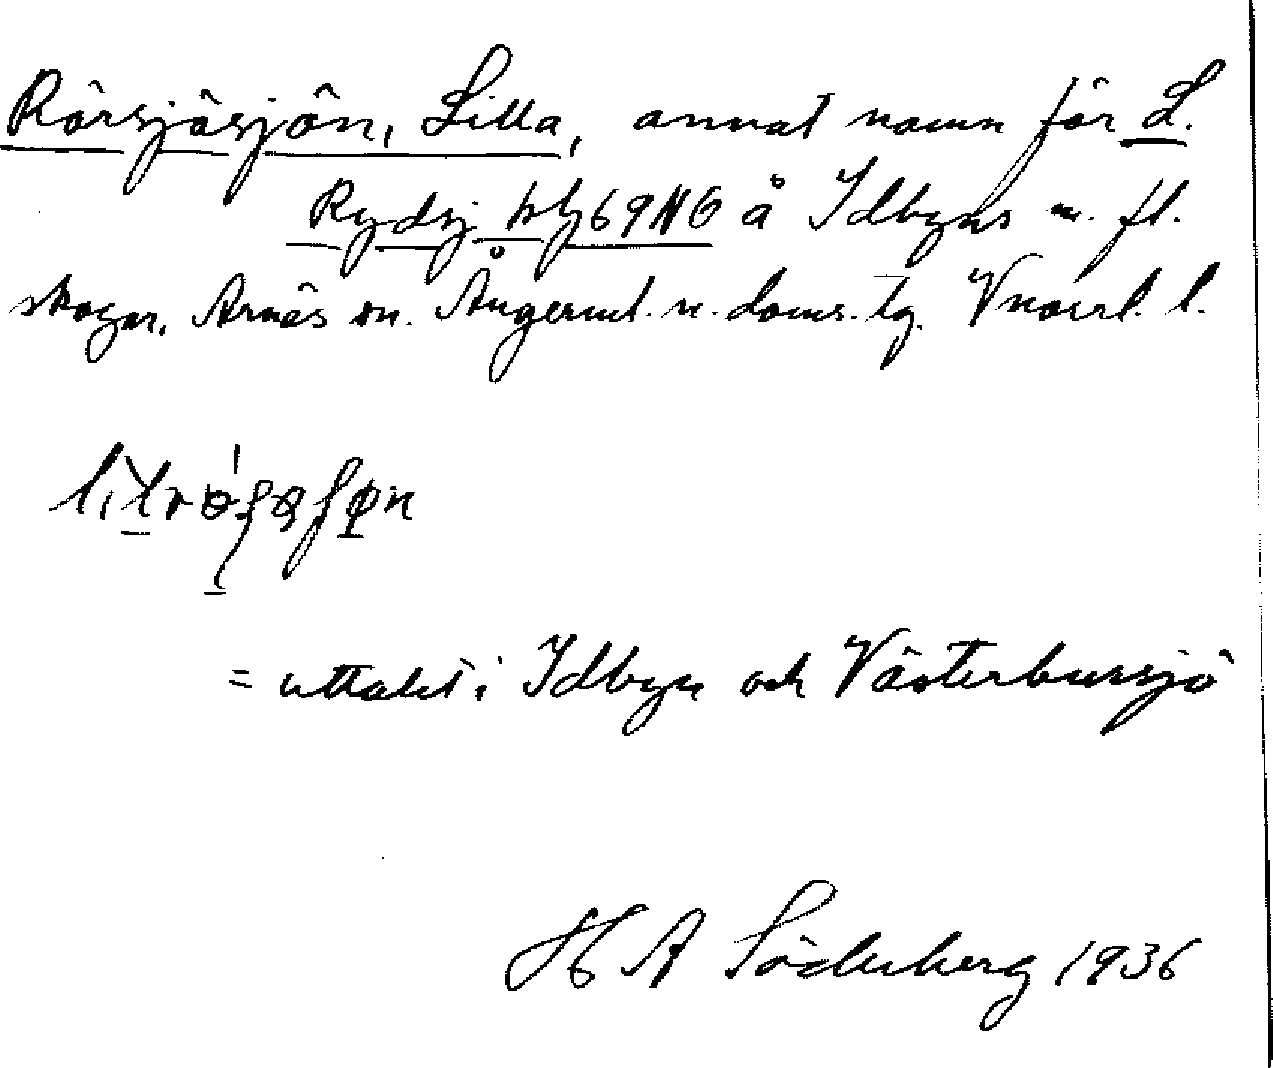 Rörsjösjön, Lilla, annat namn för L.
Rydsj kbl 69 NÖ å Idbyns m. fl.
skogar, Arnäs sn. Ångerml. n. doms. tg. Vnorrl. l.
= uttalet i Idbyn och Västerbursjö
H A Söderberg 1936